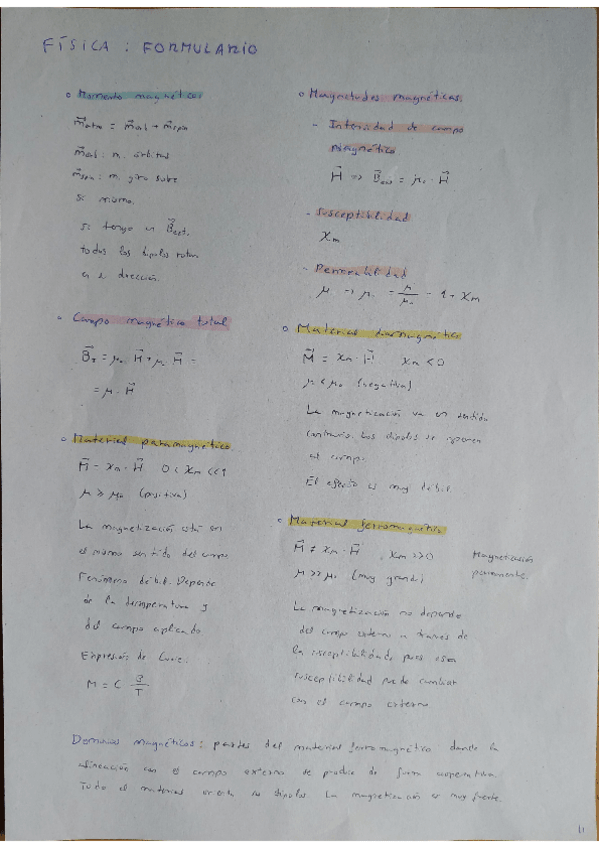 FÍSICA : FORMULARIO
Momento magnético
m⃗atm = m⃗orb + m⃗spin
m⃗orb : m. orbital
m⃗spin : m. giro sobre
si mismo.
si tengo un B⃗ext,
todos los dipolos rotan
en dirección.
Campo magnético total
B⃗T = μ₀ · H⃗ + μ₀ H⃗ =
= μ · H⃗
Material paramagnético
M⃗ = χm · H⃗ 0 < χm << 1
μ ≥ μ₀ (positiva)
La magnetización está en
el mismo sentido del campo
Fenómeno débil. Depende
de la temperatura y
del campo aplicado
Expresión de Curie:
M = C B/T
Magnitudes magnéticas.
- Intensidad de campo
magnético
H⃗ => B⃗ext = μ₀ · H⃗
- Susceptibilidad
χm
- Permeabilidad
μ → μr = μ/μ₀ = 1 + χm
Material diamagnético
M⃗ = χm · H⃗ χm < 0
μ < μ₀ (negativa)
La magnetización va en sentido
contrario. Los dipolos se oponen
al campo.
El efecto es muy débil
Material ferromagnético
M⃗ ≠ χm · H⃗ , χm >> 0
Magnetización
permanente.
μ >> μ₀ (muy grande)
La magnetización no depende
del campo externo a través de
la susceptibilidad pues esta
susceptibilidad puede cambiar
con el campo externo
Dominios magnéticos: partes del material ferromagnético donde la
alineación con el campo externo se produce de forma cooperativa.
Todo el material orienta los dipolos La magnetización es muy fuerte.